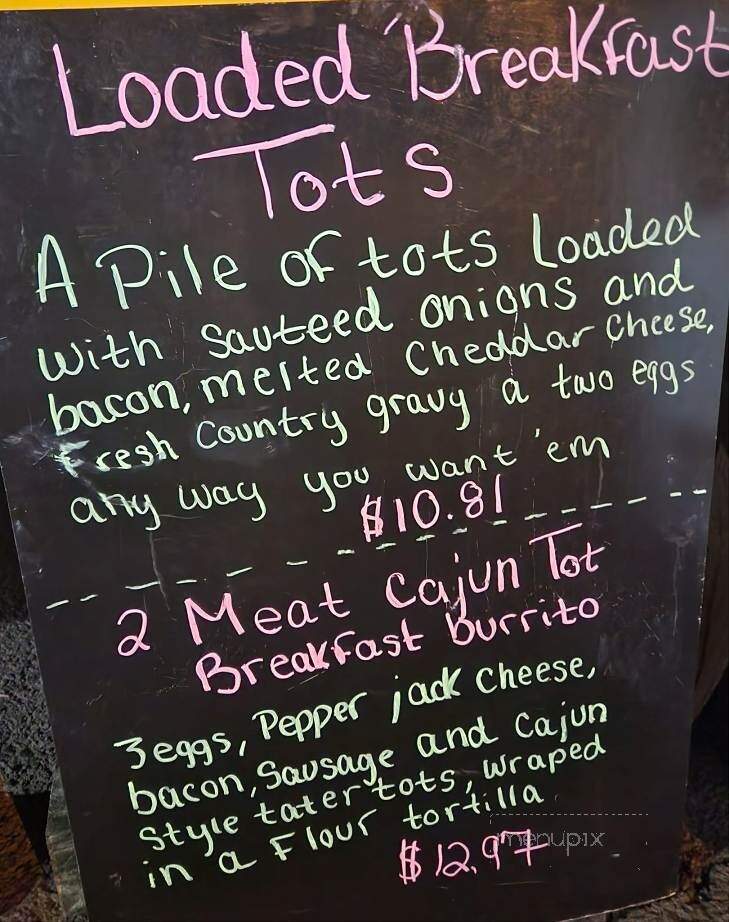 Loaded Breakfast
Tots
A Pile of tots Loaded
with sauteed onions and
bacon, melted Cheddar Cheese,
Fresh Country gravy a two eggs
any way you want 'em
$10.81
2 Meat Cajun Tot
Breakfast burrito
3eggs, Pepper jack cheese,
bacon, Sausage and Cajun
style tater tots, wraped
in a Flour tortilla
$12.97
menupix